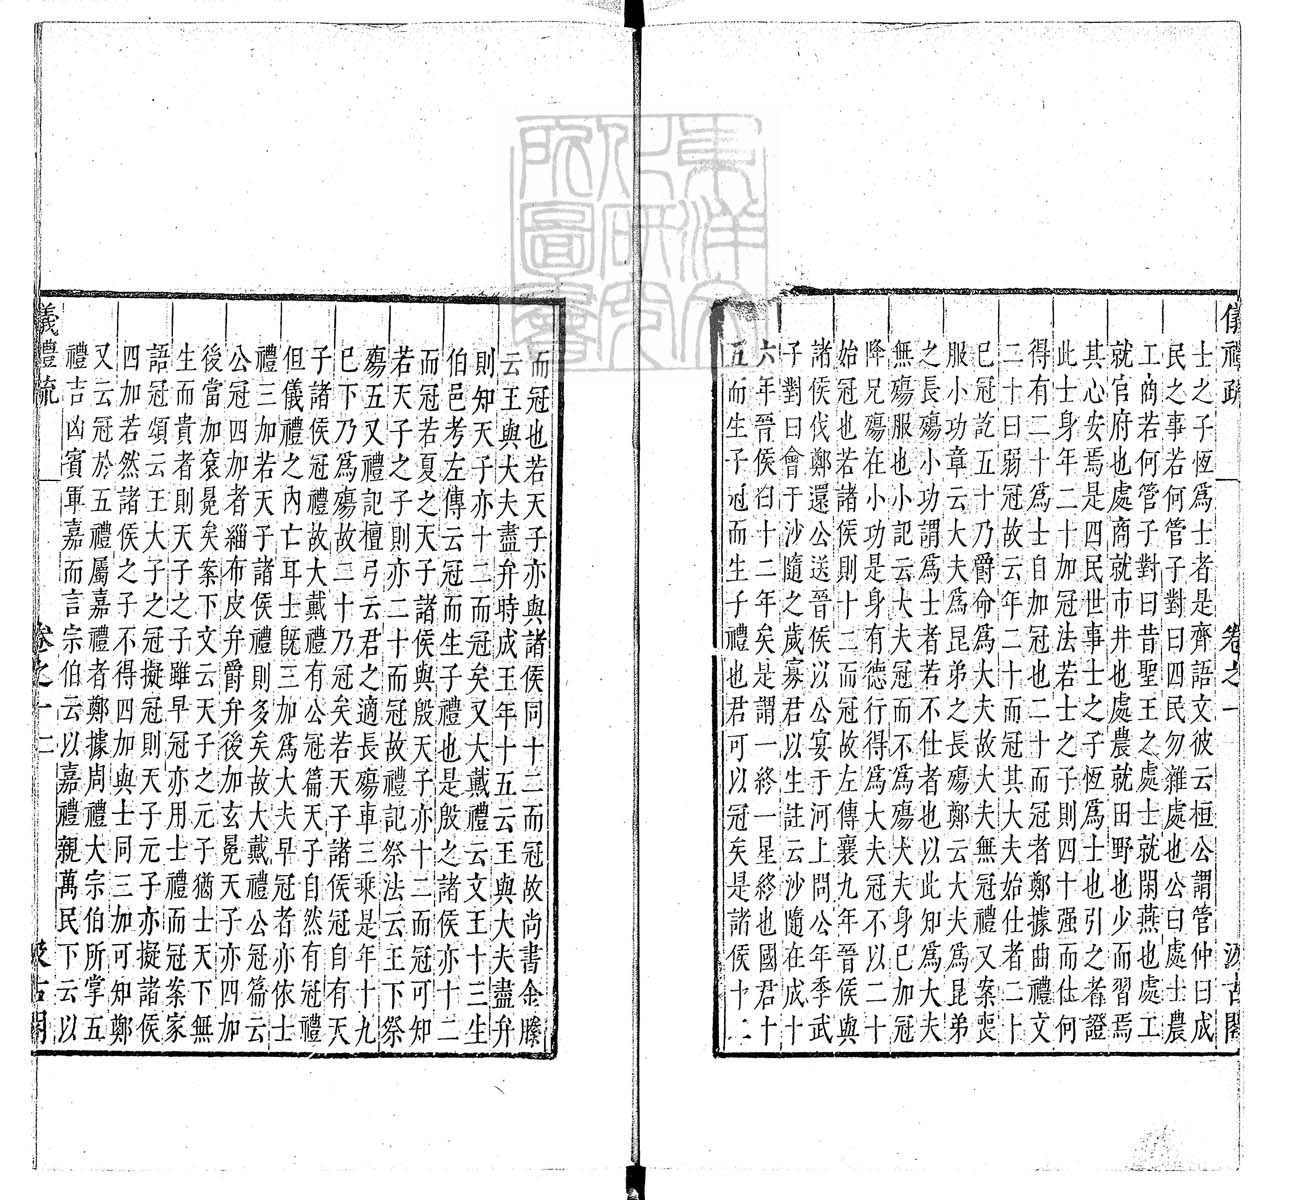 儀禮疏 卷之一 汲古閣
士之子恆爲士者是齊語文彼云桓公謂管仲曰成
民之事若何管子對曰四民勿雜處也公曰處士農
工商若何管子對曰昔聖王之處士就閑燕也處工
就官府也處商就市井也處農就田野也少而習焉
其心安焉是四民世事士之子恆爲士也引之者證
此士身年二十加冠法若士之子則四十强而仕何
得有二十爲士自加冠也二十而冠者鄭據曲禮文
二十曰弱冠故云年二十而冠其大夫始仕者二十
已冠訖五十乃爵命爲大夫故大夫無冠禮又案喪
服小功章云大夫爲昆弟之長殤鄭云大夫爲昆弟
之長殤小功謂爲士者若不仕者也以此知爲大夫
無殤服也小記云大夫冠而不爲殤大夫身已加冠
降兄殤在小功是身有德行得爲大夫冠不以二十
始冠也若諸侯則十二而冠故左傳襄九年晉侯與
諸侯伐鄭還公送晉侯以公宴于河上問公年季武
子對曰會于沙隨之歲寡君以生註云沙隨在成十
六年晉侯曰十二年矣是謂一終一星終也國君十
五而生子冠而生子禮也君可以冠矣是諸侯十二
而冠也若天子亦與諸侯同十二而冠故尚書金縢
云王與大夫盡弁時成王年十五云王與大夫盡弁
則知天子亦十二而冠矣又大戴禮云文王十三生
伯邑考左傳云冠而生子禮也是殷之諸侯亦十二
而冠若夏之天子諸侯與殷天子亦十二而冠可知
若天子之子則亦二十而冠故禮記祭法云王下祭
殤五又禮記檀弓云君之適長殤車三乘是年十九
已下乃爲殤故二十乃冠矣若天子諸侯冠自有天
子諸侯冠禮故大戴禮有公冠篇天子自然有冠禮
但儀禮之內亡耳士旣三加爲大夫早冠者亦依士
禮三加若天子諸侯禮則多矣故大戴禮公冠篇云
公冠四加者緇布皮弁爵弁後加玄冕天子亦四加
後當加衮冕矣案下文云天子之元子猶士天下無
生而貴者則天子之子雖早冠亦用士禮而冠案家
語冠頌云王大子之冠擬冠則天子元子亦擬諸侯
四加若然諸侯之子不得四加與士同三加可知鄭
又云冠於五禮屬嘉禮者鄭據周禮大宗伯所掌五
禮吉凶賓軍嘉而言宗伯云以嘉禮親萬民下云以
儀禮疏 卷之一 二 汲古閣
東洋文化研究所圖書